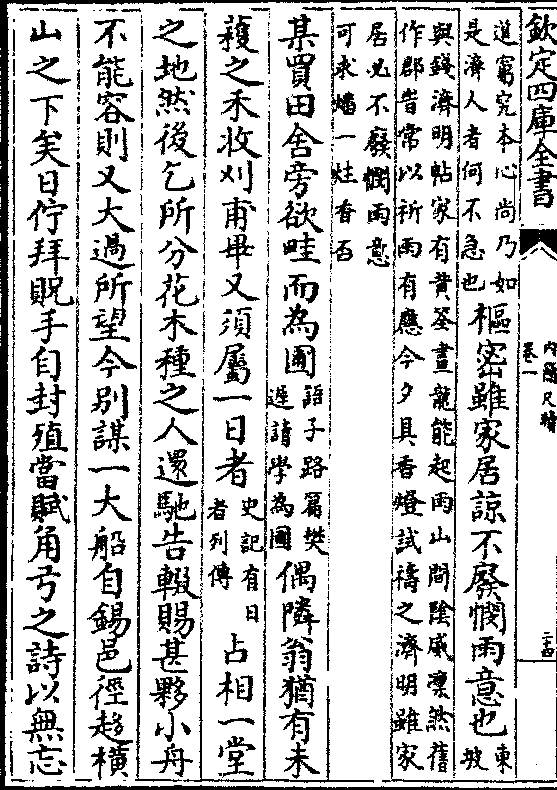 欽定四庫全書
內簡尺牘
卷一
進窮究本心尚乃如
是濟人者何不急也
樞密雖家居諒不廢憫雨意也
東
坡
與錢濟明帖家有黃筌畫龍能起雨山間陰威凛然舊
作郡時常以祈雨有應今夕具香燈試禱之濟明雖家
居必不廢憫雨意
可求燔一炷香否
某買田舍旁欲畦而為圃
語子路篇樊
遲請學為圃
偶隣翁猶有未
穫之禾收刈甫畢又須屬一日者
史記有日
者列傳
占相一堂
之地然後乞所分花木種之人還馳告輟賜甚夥小舟
不能容則又大過所望今別謀一大船自錫邑徑趍橫
山之下矣日佇拜貺手自封殖當賦角弓之詩以無忘